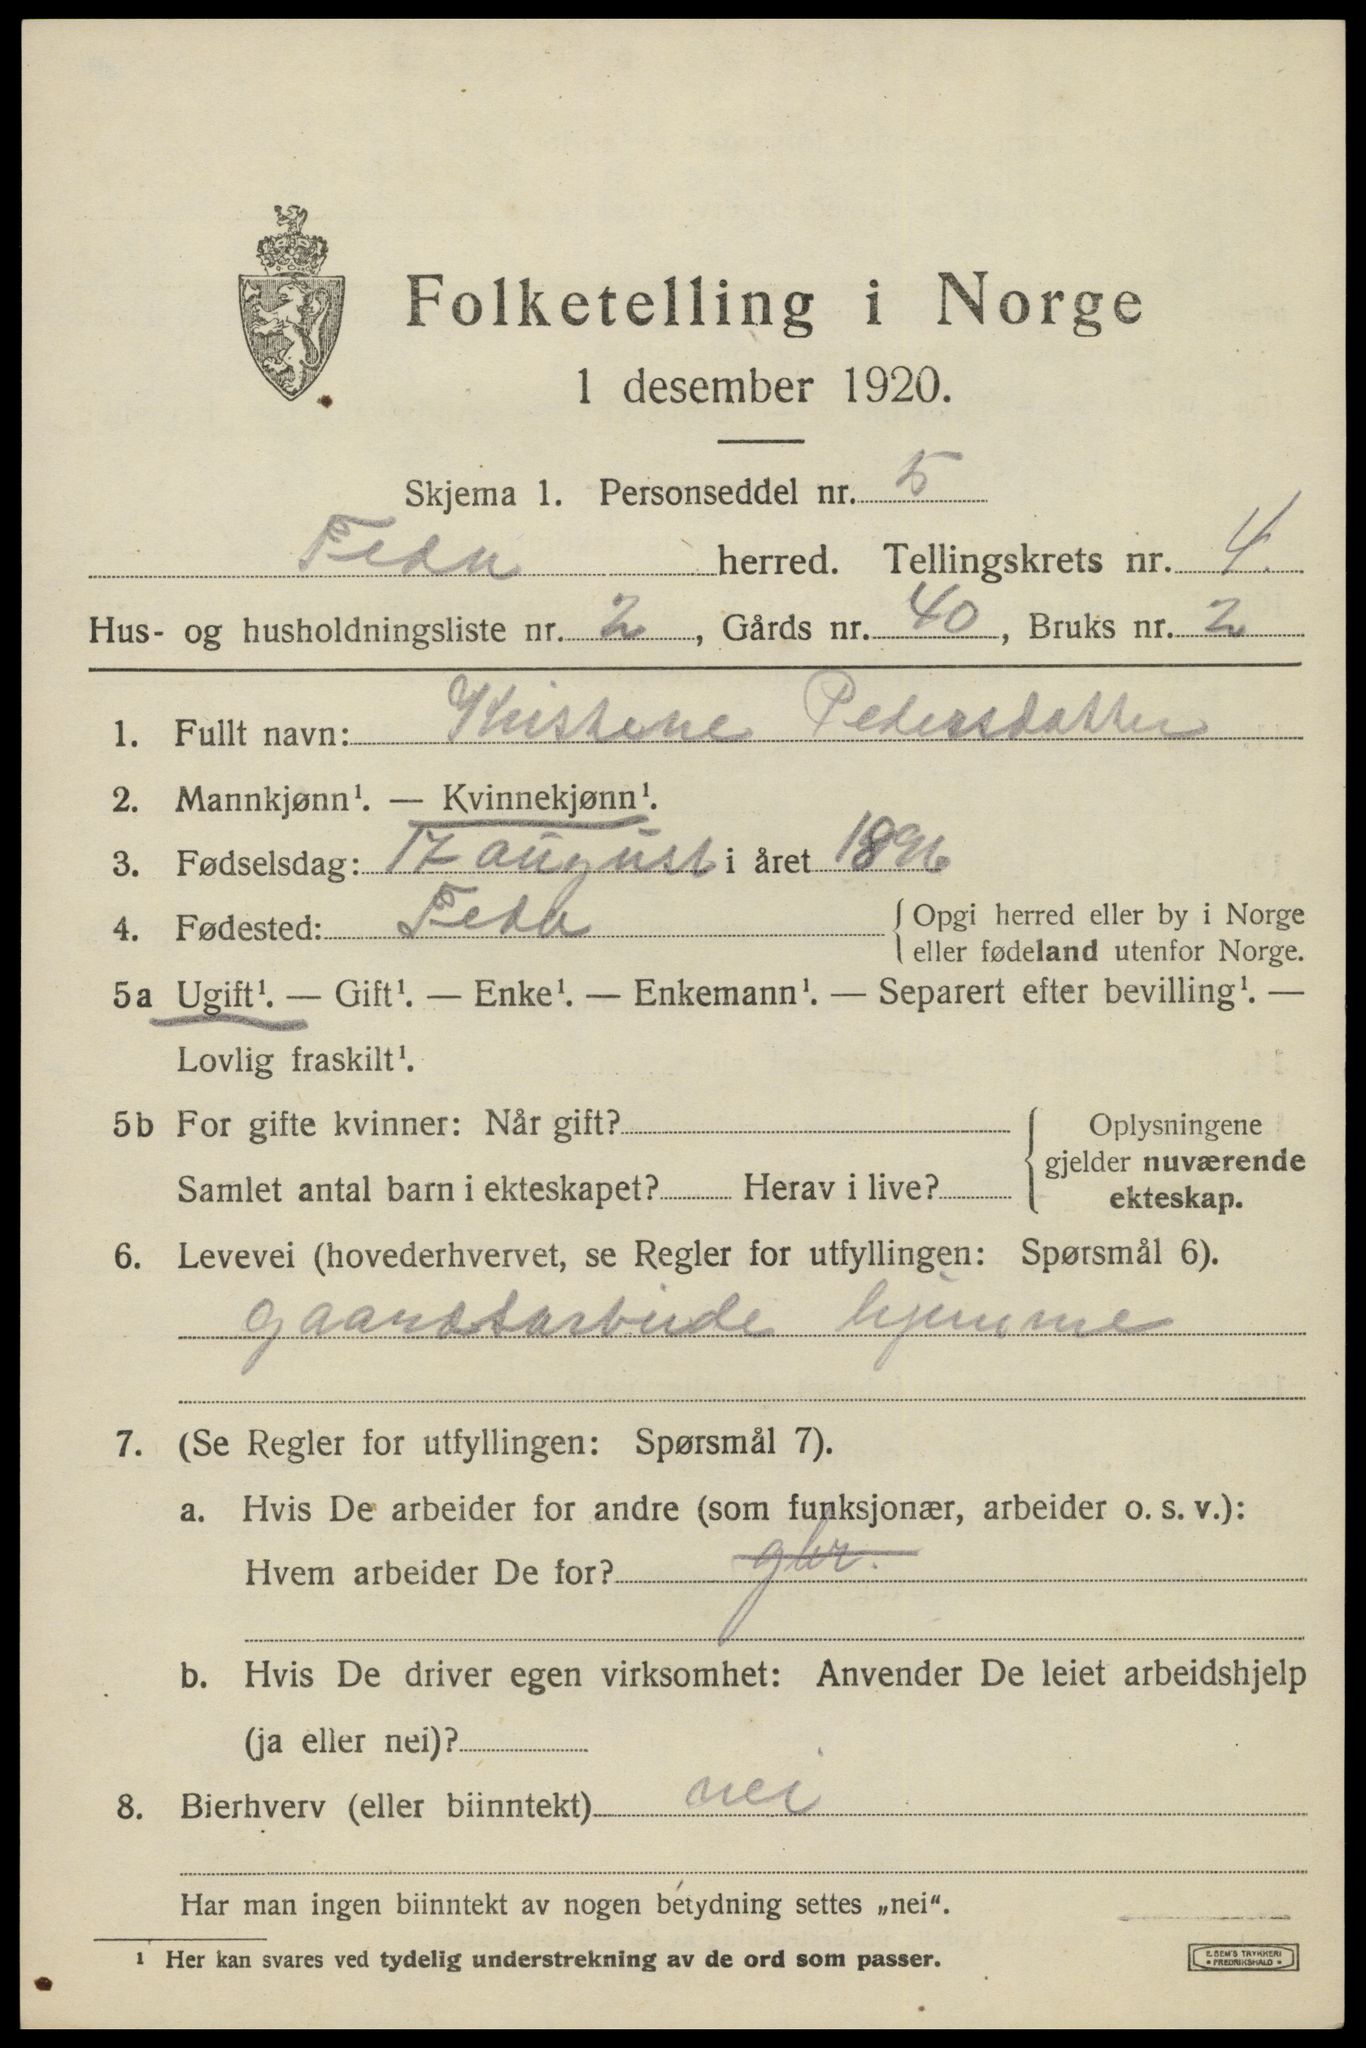 Folketelling i Norge
1 desember 1920.
Skjema 1. Personseddel nr. 5
Feda herred. Tellingskrets nr. 4.
Hus- og husholdningsliste nr. 2, Gårds nr. 40, Bruks nr. 2
1. Fullt navn: Kristene Pedersdatter
2. Mannkjønn¹. — Kvinnekjønn¹.
3. Fødselsdag: 17 august i året 1896
4. Fødested: Feda { Opgi herred eller by i Norge
eller fødeland utenfor Norge.
5a Ugift¹. — Gift¹. — Enke¹. — Enkemann¹. — Separert efter bevilling¹. —
Lovlig fraskilt¹.
5b For gifte kvinner: Når gift?
Samlet antal barn i ekteskapet? Herav i live?
Oplysningene
gjelder nuværende
ekteskap.
6. Levevei (hovederhvervet, se Regler for utfyllingen: Spørsmål 6).
gaardsarbeide hjemme
7. (Se Regler for utfyllingen: Spørsmål 7).
a. Hvis De arbeider for andre (som funksjonær, arbeider o. s. v.):
Hvem arbeider De for? gbr.
b. Hvis De driver egen virksomhet: Anvender De leiet arbeidshjelp
(ja eller nei)?
8. Bierhverv (eller biinntekt) nei
Har man ingen biinntekt av nogen betydning settes „nei“.
¹ Her kan svares ved tydelig understrekning av de ord som passer.
E. SEM'S TRYKKERI
• FREDRIKSHALD •